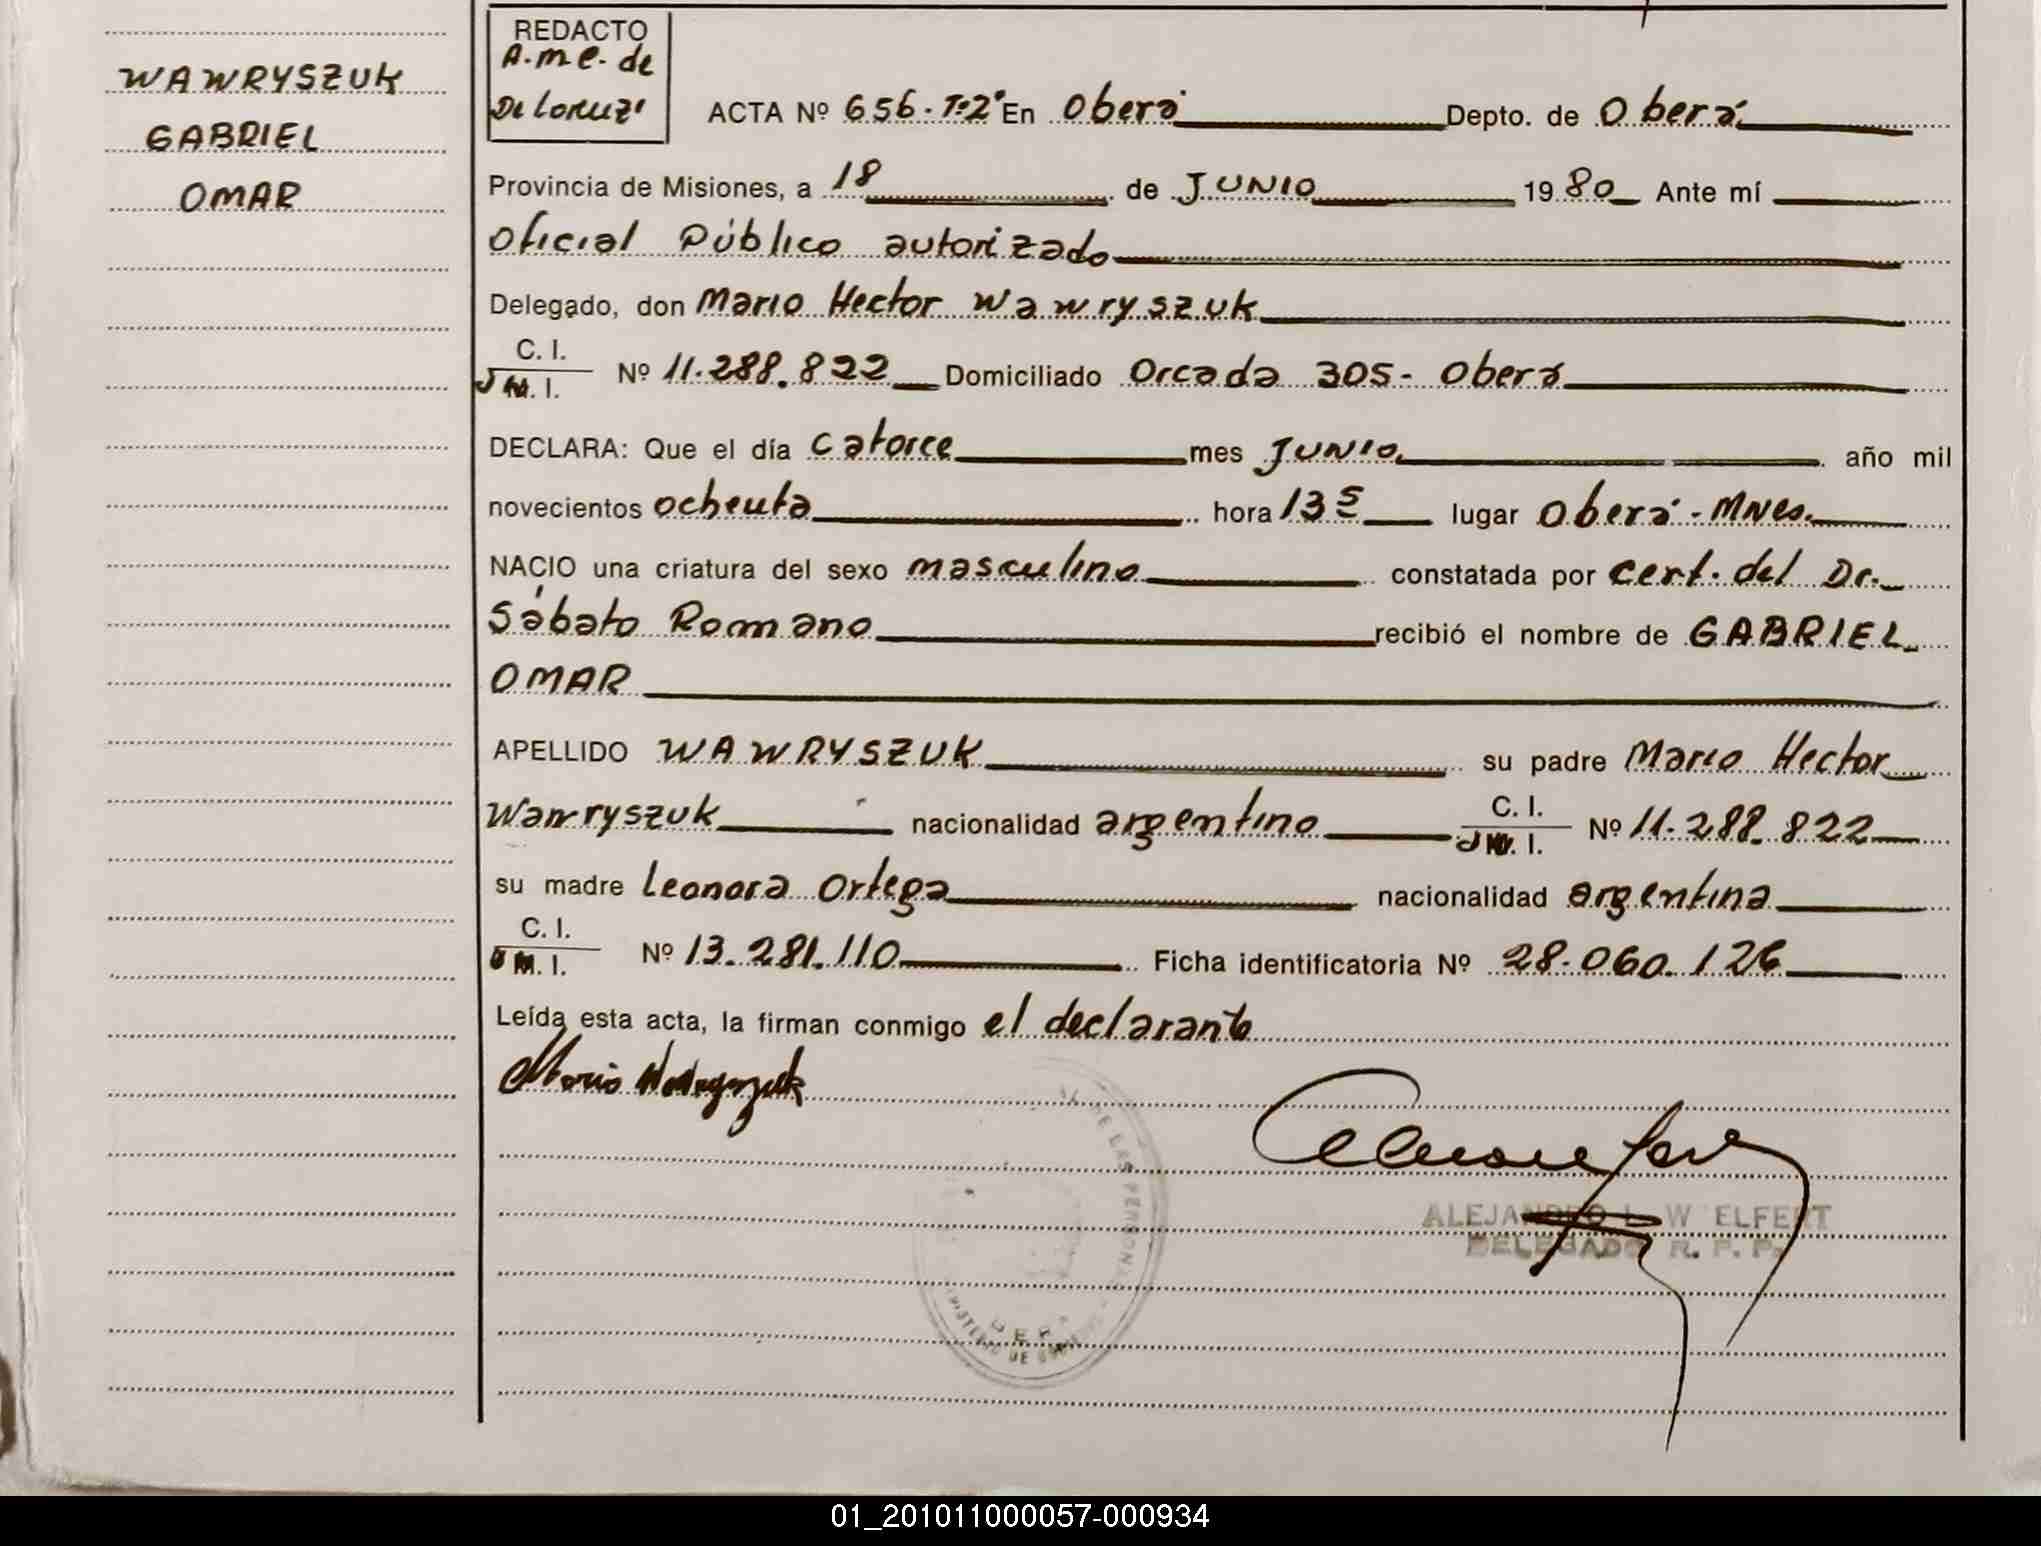 WAWRYSZUK
GABRIEL
OMAR
REDACTO
A.M.E. de
De Lorenzi
ACTA Nº 656-Tº2º En Oberá Depto. de Oberá
Provincia de Misiones, a 18 de JUNIO 1980 Ante mí
Oficial Público autorizado
Delegado, don Mario Hector Wawryszuk
C. I.
M. I. Nº 11.288.822 Domiciliado Orcada 305 - Oberá
DECLARA: Que el día catorce mes JUNIO año mil
novecientos ochenta hora 13 5 lugar Oberá - Mnes.
NACIO una criatura del sexo masculino constatada por cert. del Dr.
Sábato Romano recibió el nombre de GABRIEL
OMAR
APELLIDO WAWRYSZUK su padre Mario Hector
Wawryszuk nacionalidad argentino C. I.
M. I. Nº 11.288.822
su madre Leonora Ortega nacionalidad argentina
C. I.
M. I. Nº 13.281.110 Ficha identificatoria Nº 28.060.126
Leída esta acta, la firman conmigo el declarante
Mario Wawryszuk
DE LAS PERSONAS
MINISTERIO DE
ALEJANDRO L. W ELFERT
DELEGADO R. P. P.
01_201011000057-000934